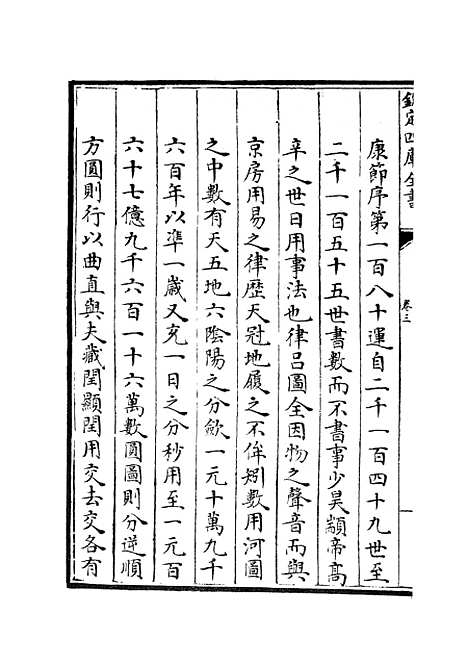 欽定四庫全書
卷三
康節序第一百八十運自二千一百四十九世至
二千一百五十五世書數而不書事少昊顓帝高
辛之世日用事法也律呂圖全因物之聲音而與
京房用易之律歴天冠地履之不侔矧數用河圖
之中數有天五地六陰陽之分歛一元十萬九千
六百年以準一歳又充一日之分秒用至一元百
六十七億九千六百一十六萬數圓圖則分逆順
方圓則行以曲直與夫藏閏顯閏用交去交各有